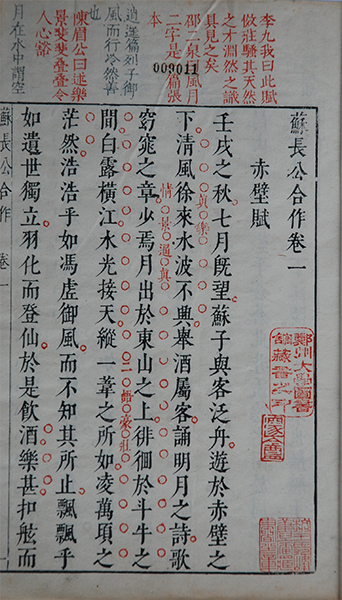 李九我曰此賦
倣莊騷其天然
之才淵然之識
具見之矣
邵二泉曰風月
二字是一篇張
本
009011
逍遙篇列子御
風而行冷然善
也
陳眉公曰樂
景斐斐疊疊令
人心豁
月在水中謂空
蘇長公合作卷一
赤壁賦
壬戌之秋七月既望蘇子與客泛舟遊於赤壁之
真樂
下清風徐來水波不興舉酒屬客誦明月之詩歌
情景逼真
窈窕之章少焉月出於東山之上徘徊於斗牛之
二語豪壯
間白露橫江水光接天縱一葦之所如凌萬頃之
茫然浩浩乎如馮虛御風而不知其所止飄飄乎
如遺世獨立羽化而登仙於是飲酒樂甚扣舷而
蘇長公合作 卷一
鄭州大學圖書
館藏書之印